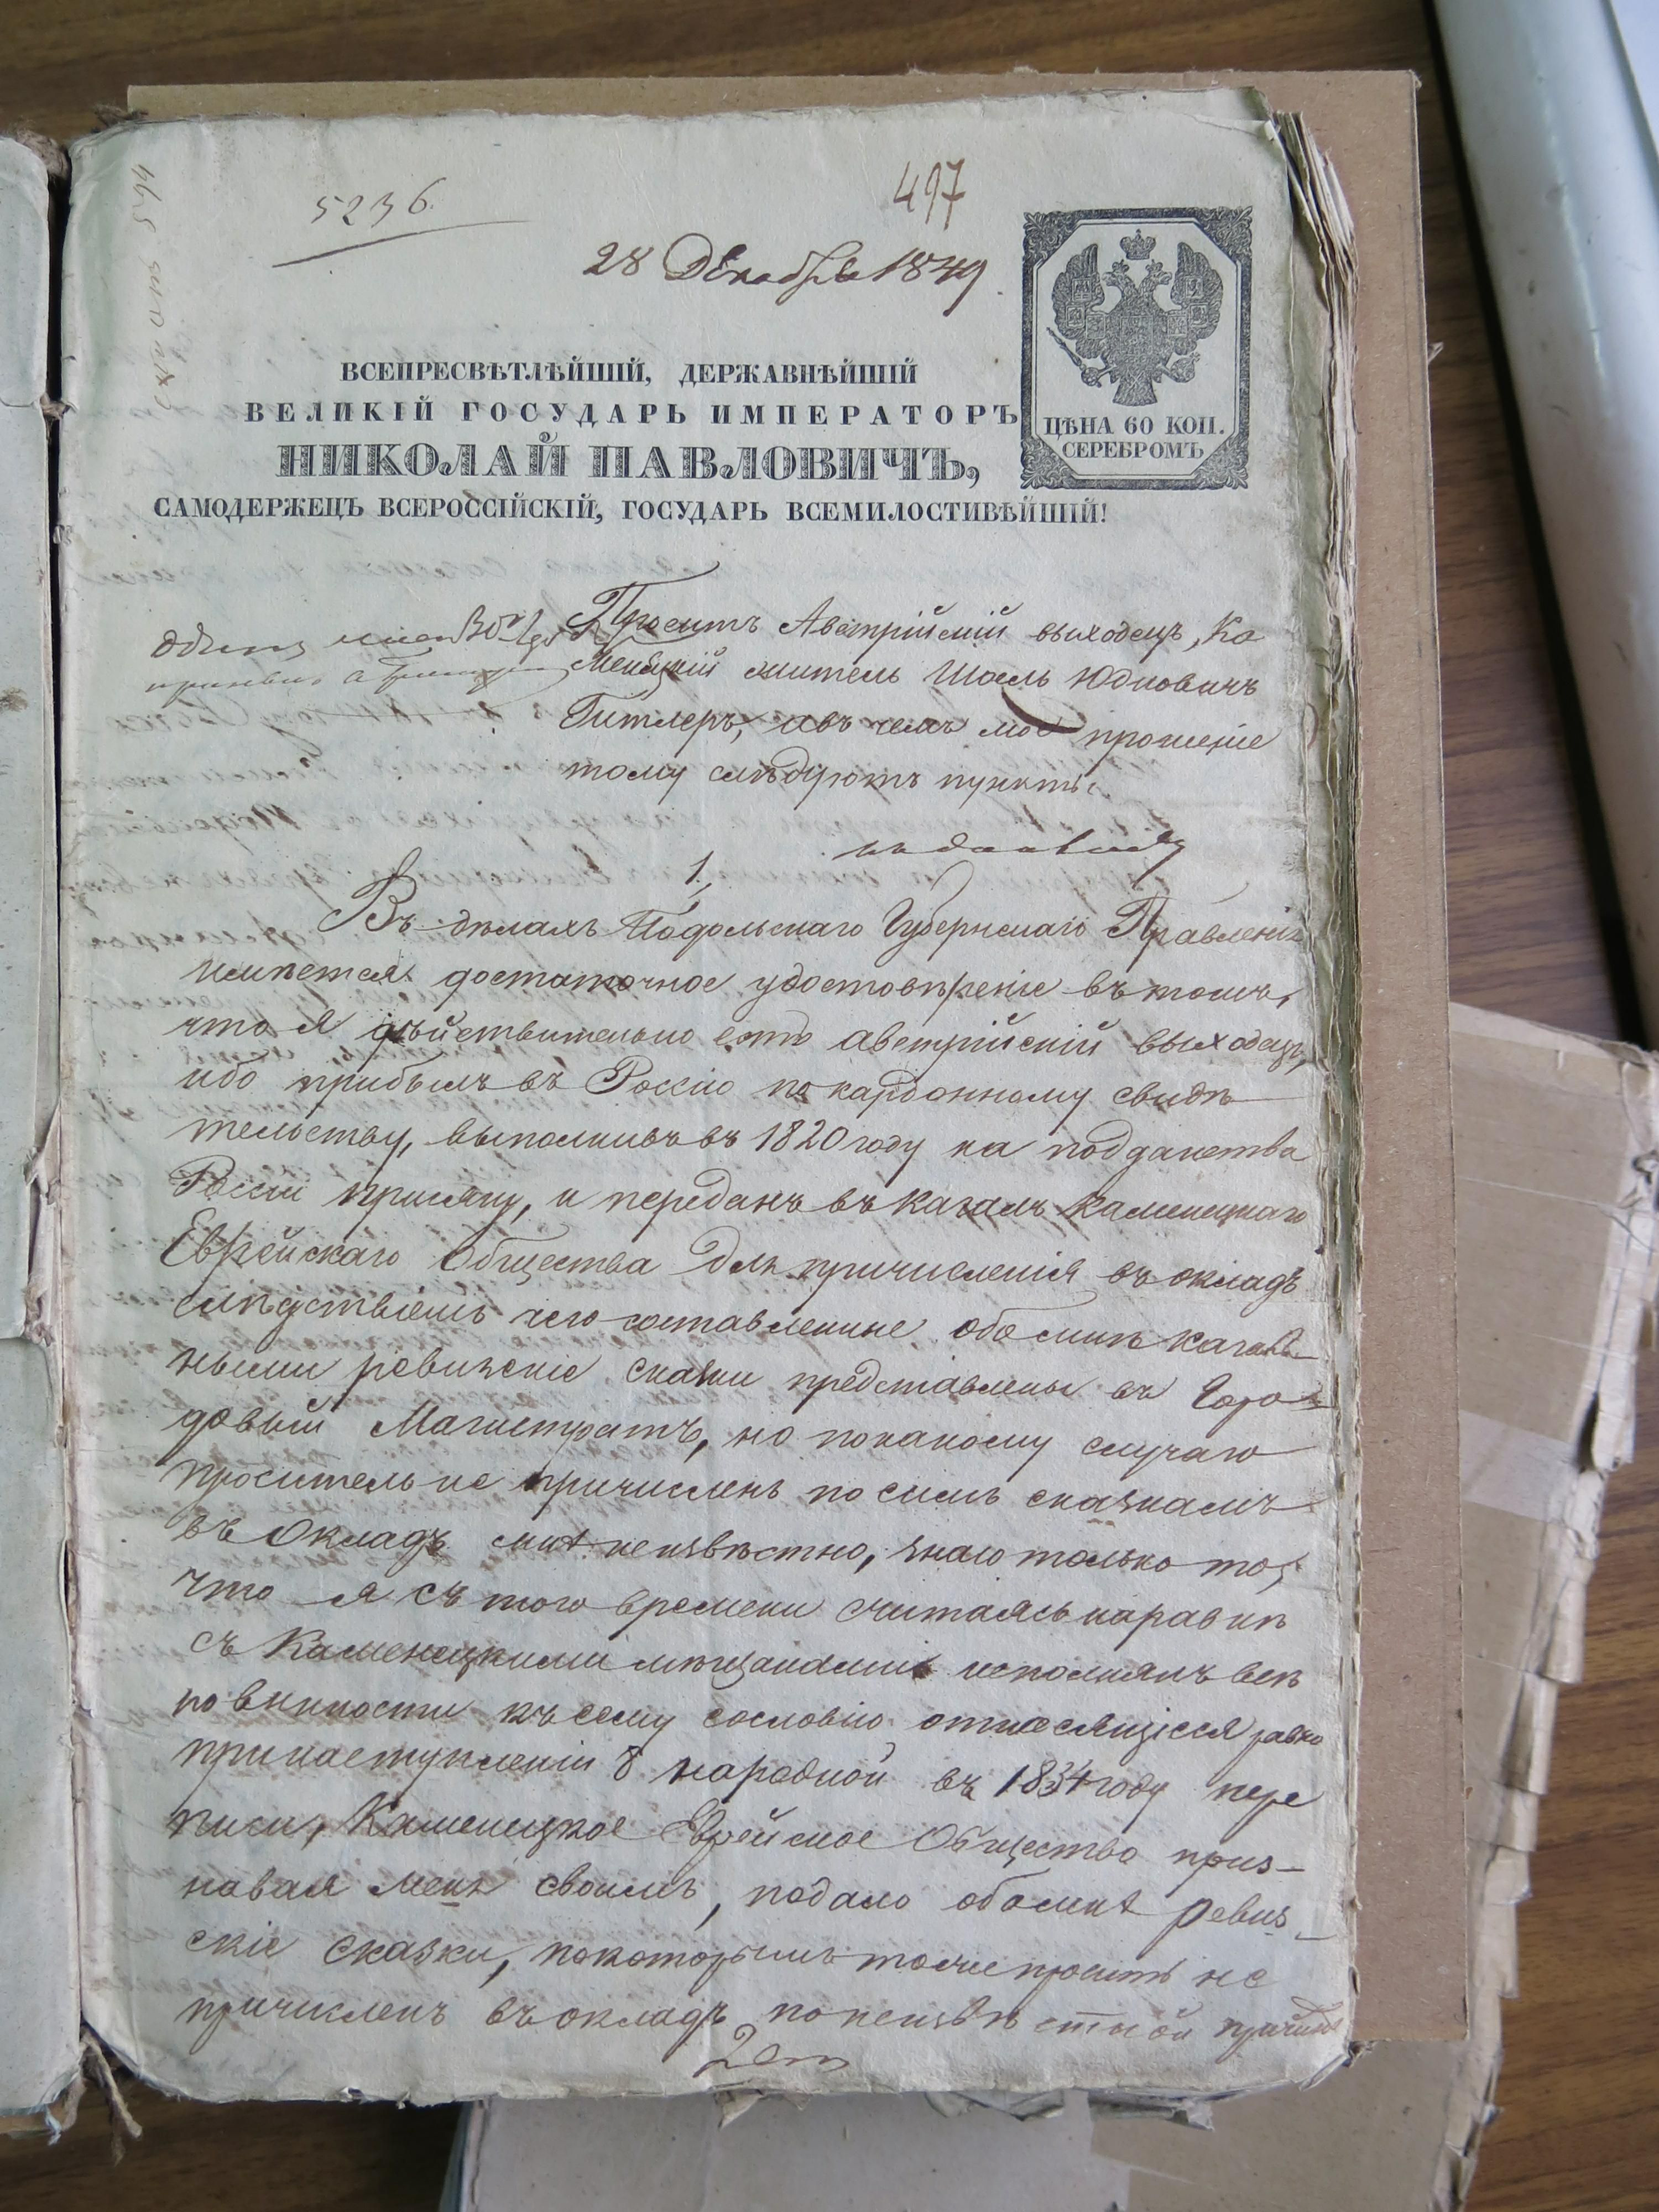 5236.
497
28 Декабря 1849.
ВСЕПРЕСВѢТЛѢЙШІЙ, ДЕРЖАВНѢЙШІЙ
ВЕЛИКІЙ ГОСУДАРЬ ИМПЕРАТОРЪ
НИКОЛАЙ ПАВЛОВИЧЪ,
САМОДЕРЖЕЦЪ ВСЕРОССІЙСКІЙ, ГОСУДАРЬ ВСЕМИЛОСТИВѢЙШІЙ!
ЦѢНА 60 КОП.
СЕРЕБРОМЪ
Проситъ Австрійскій выходецъ, Ка
менецкій житель Шоель Юдковичъ
Гитлеръ, а въ чемъ мое прошеніе
тому слѣдуютъ пункты.
1.
Въ дѣлахъ Подольскаго Губернскаго Правленія
имѣется достаточное удостовѣреніе въ томъ,
что я дѣйствительно есть австрійскій выходецъ,
ибо прибылъ въ Россію по кардонному свидѣ
тельству, выполнивъ въ 1820 году на подданства
Россіи присягу, и переданъ въ кагалъ Каменецкаго
Еврейскаго Общества для причисленія въ окладъ
слѣдствіемъ чего составленные обо мнѣ кагаль-
ными ревизскіе сказки представлены въ Горо-
довый Магистратъ, но по какому случаю
проситель не причисленъ по симъ сказкамъ
въ окладъ мнѣ неизвѣстно, знаю только то,
что я съ того времени считаясь наравнѣ
съ Каменецкими мѣщанами исполнялъ всѣ
повинности къ сему сословію относящіеся равно
при наступленіи 8 народной въ 1834 году пере
писи, Каменецкое Еврейское Общество приз-
навая меня своимъ, подало обо мнѣ ревиз-
скіе сказки, по которымъ тоже проситъ не
причисленъ въ окладъ по неизвѣстной причинѣ